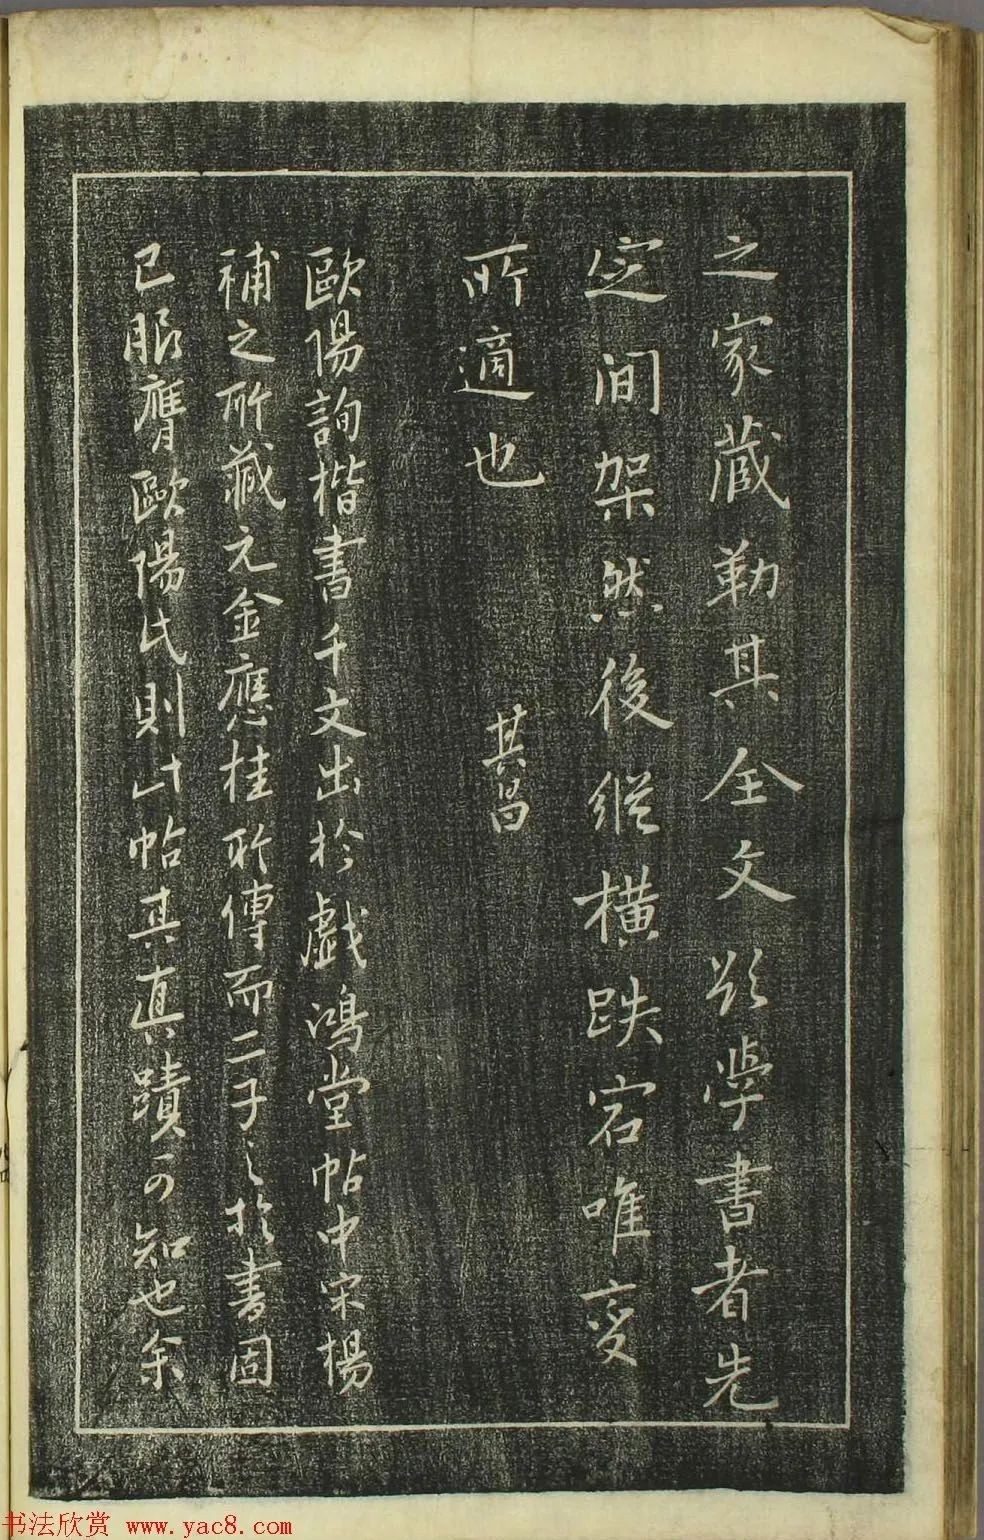 之家藏勒其全文欲學書者先
定間架然後縱橫跌宕唯变
所適也
其昌
歐陽詢楷書千文出於戲鴻堂帖中宋楊
補之所藏元金應桂所傳而二子之於書固
已服膺歐陽氏則此帖其真蹟可知也余
书法欣赏 www.yac8.com